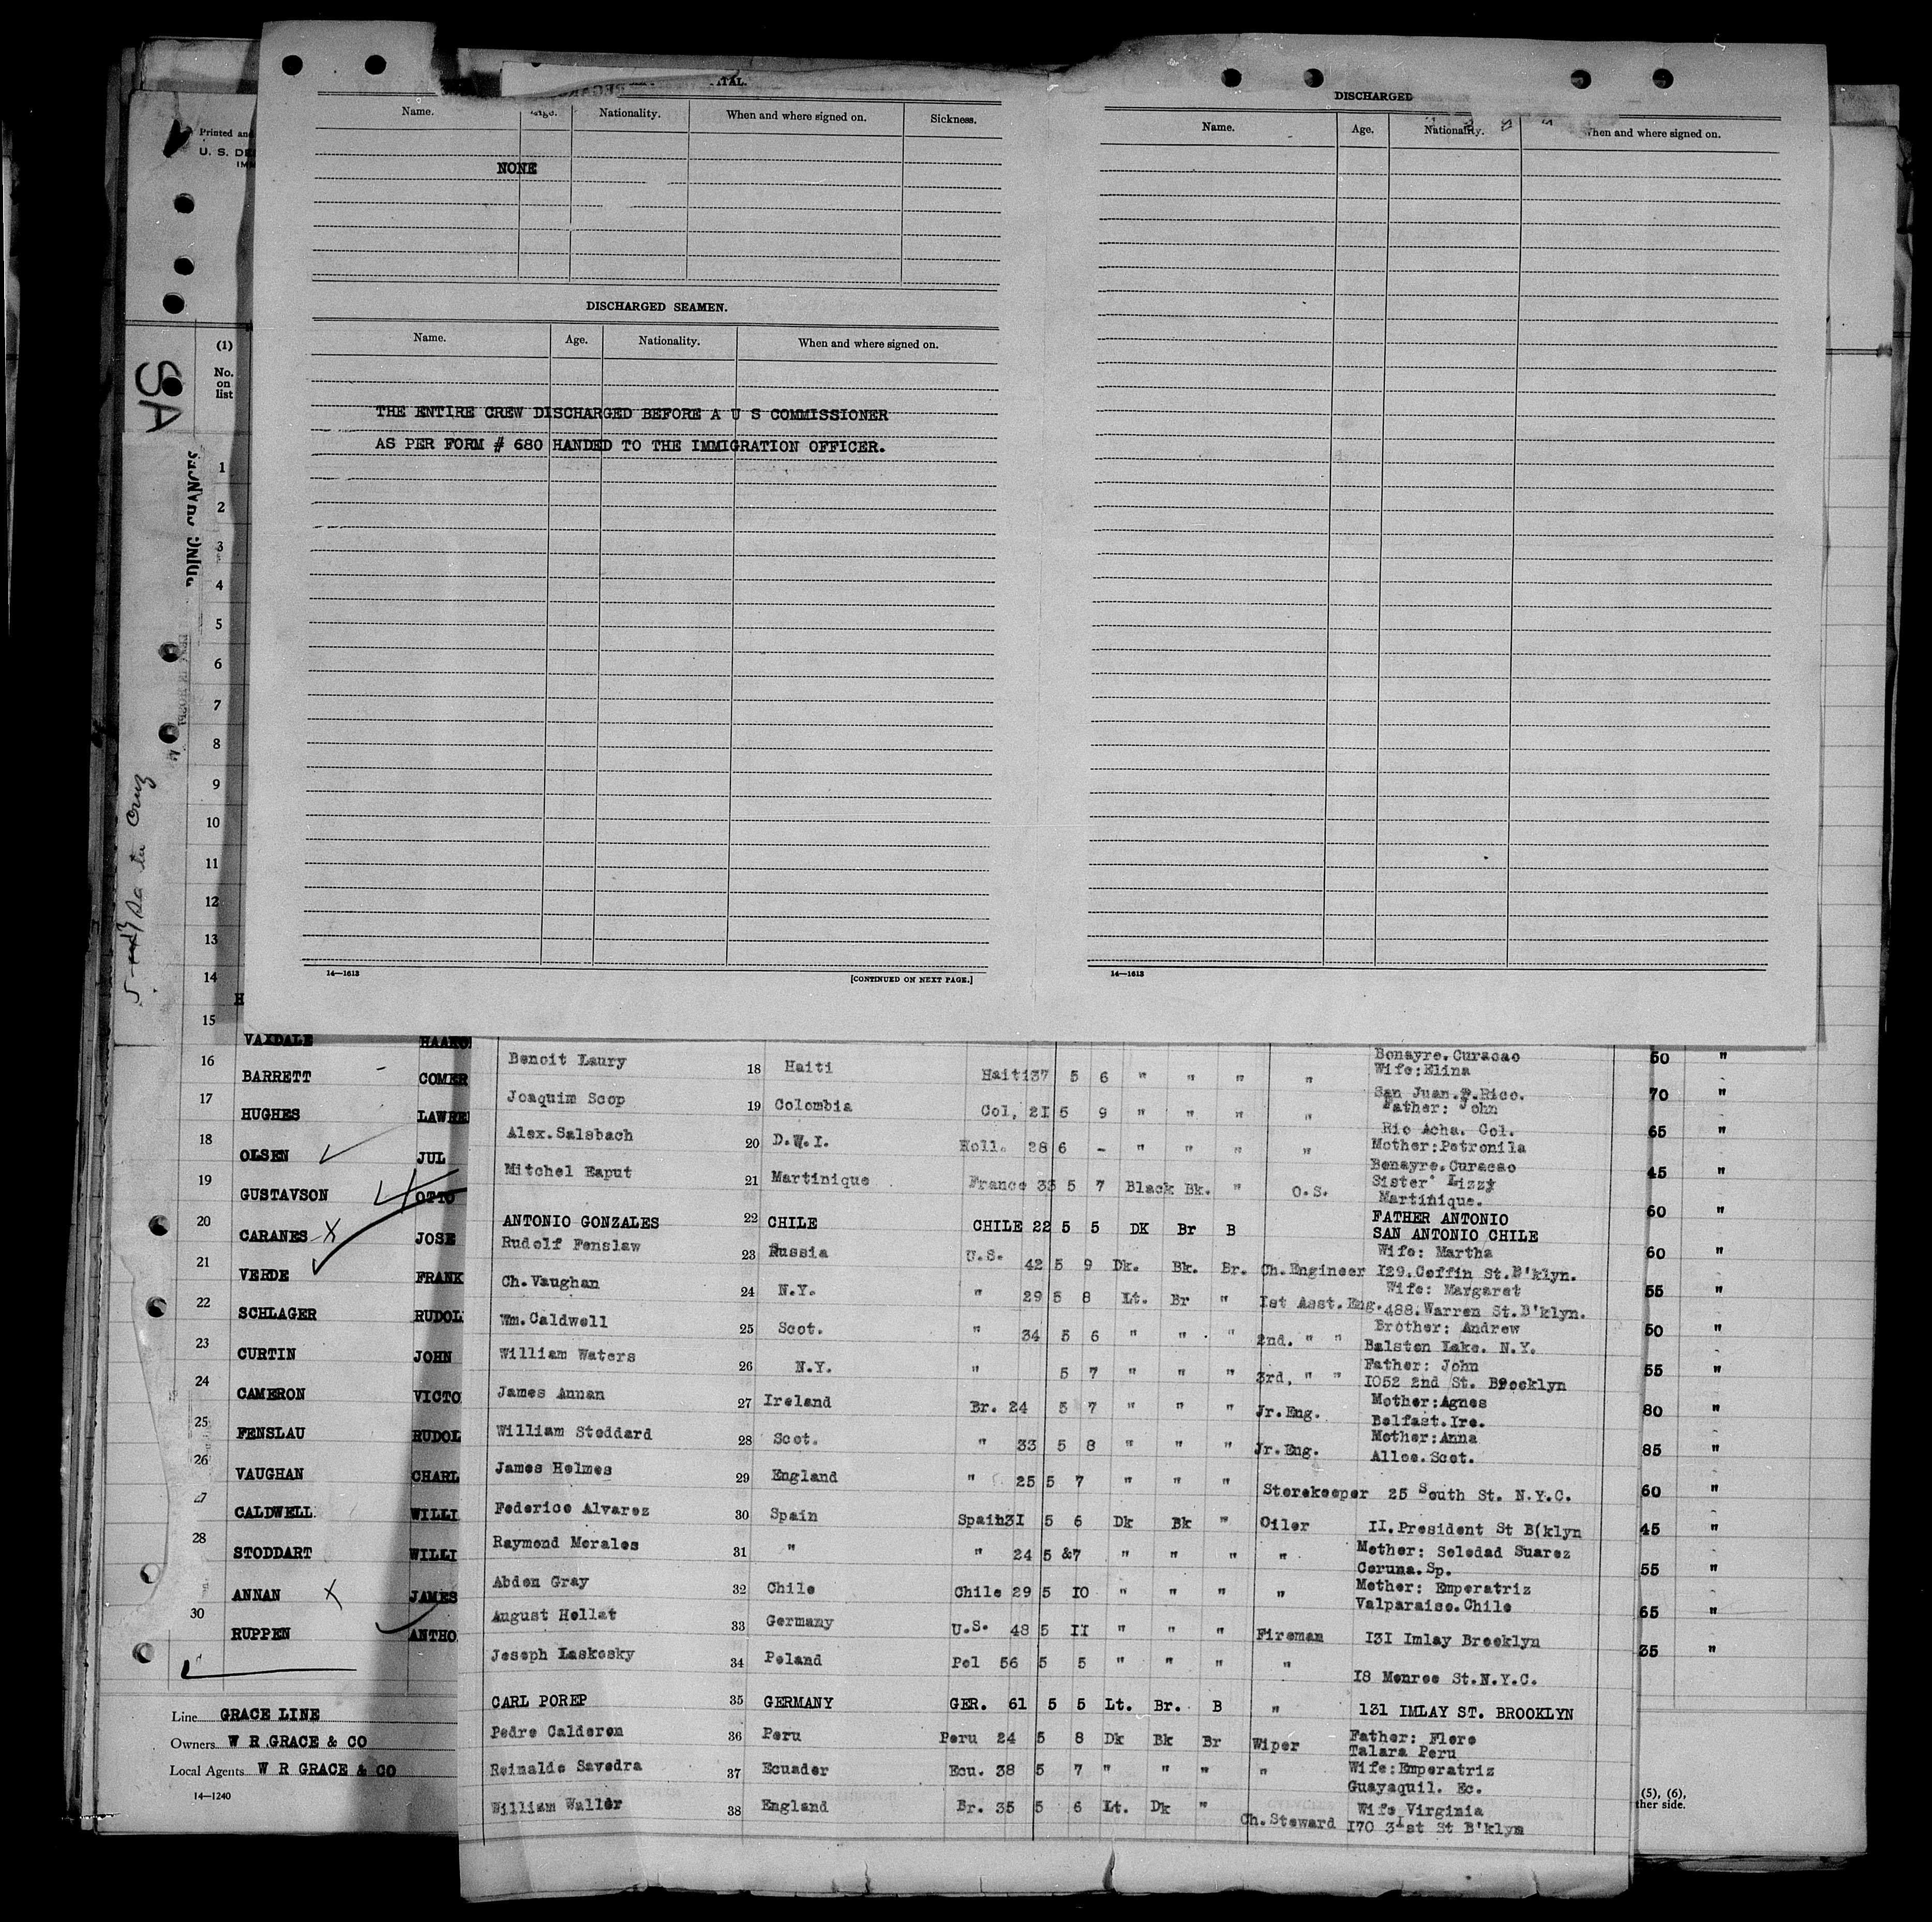 Name.
Nationality.
When and where signed on.
Sickness.
NONE
DISCHARGED SEAMEN.
Name.
Age.
Nationality.
When and where signed on.
THE ENTIRE CREW DISCHARGED BEFORE A U S COMMISSIONER
AS PER FORM # 680 HANDED TO THE IMMIGRATION OFFICER.
14—1613
[CONTINUED ON NEXT PAGE.]
DISCHARGED
Name.
Age.
Nationality.
When and where signed on.
14—1613
Printed and
U. S. DE
IMM
(1)
No.
on
list
SA
1
2
3
4
5
6
7
8
9
10
11
12
13
14
H
15
VAXDALE HAAKO
16
BARRETT COMER
17
HUGHES LAWRE
18
OLSEN JUL
19
GUSTAVSON OTTO
20
CARANES X JOSE
21
VERDE FRANK
22
SCHLAGER RUDOL
23
CURTIN JOHN
24
CAMERON VICTO
25
FENSLAU RUDOL
26
VAUGHAN CHARL
27
CALDWELL WILLI
28
STODDART WILLI
ANNAN X JAMES
30
RUPPEN ANTHO
Line GRACE LINE
Owners W R GRACE & CO
Local Agents W R GRACE & CO
14—1240
Bonayre.Curacao
Benoit Laury 18 Haiti Haiti 37 5 6 " " " " Wife:Elina
San Juan.P.Rico.
Joaquim Scop 19 Colombia Col, 21 5 9 " " " " Father: John
Rio Acha. Col.
Alex.Salsbach 20 D.W.I. Holl. 28 6 - " " " " Mother:Petronila
Bonayre.Curacao
Mitchel Eaput 21 Martinique France 35 5 7 Black Bk. " O.S. Sister Lizzy
Martinique.
ANTONIO GONZALES 22 CHILE CHILE 22 5 5 DK Br B FATHER ANTONIO
SAN ANTONIO CHILE
Rudolf Fenslaw 23 Russia U.S. 42 5 9 Dk. Bk. Br. Ch.Engineer Wife: Martha
129.Coffin St.B'klyn.
Ch.Vaughan 24 N.Y. " 29 5 8 Lt. Br " 1st Asst.Eng. Wife: Margaret
488.Warren St.B'klyn.
Wm.Caldwell 25 Scot. " 34 5 6 " " " 2nd. " " Brother: Andrew
Balston Lake. N.Y.
William Waters 26 N.Y. " 5 7 " " " 3rd. " " Father: John
1052 2nd St. Brooklyn
James Annan 27 Ireland Br. 24 5 7 " " " Jr.Eng. Mother:Agnes
Belfast.Ire.
William Stoddard 28 Scot. " 33 5 8 " " " Jr.Eng. Mother:Anna
Alloe.Scot.
James Holmes 29 England " 25 5 7 " " " Storekeeper 25 South St. N.Y.C.
Federico Alvarez 30 Spain Spain 31 5 6 Dk Bk " Oiler 11.President St B(klyn
Raymond Morales 31 " " 24 5 &7 " " " " Mother: Soledad Suarez
Coruna.Sp.
Abdon Gray 32 Chile Chile 29 5 10 " " " " Mother: Emperatriz
Valparaiso.Chile
August Hollat 33 Germany U.S. 48 5 11 " " " Fireman 131 Imlay Brooklyn
Joseph Laskosky 34 Poland Pol 56 5 5 " " " " 18 Monroe St.N.Y.C.
CARL POREP 35 GERMANY GER. 61 5 5 Lt. Br. B " 131 IMLAY ST. BROOKLYN
Pedro Calderon 36 Peru Peru 24 5 8 Dk Bk Br Wiper Father: Flore
Talara Peru
Reinaldo Savedra 37 Ecuador Ecu. 38 5 7 " " " " Wife:Emperatriz
Guayaquil. Ec.
William Waller 38 England Br. 35 5 6 Lt. Dk " Ch.Steward Wife Virginia
170 31st St B'klyn
50 "
70 "
65 "
45 "
60 "
60 "
55 "
50 "
55 "
80 "
85 "
60 "
45 "
55 "
65 "
35 "
(5), (6),
ther side.